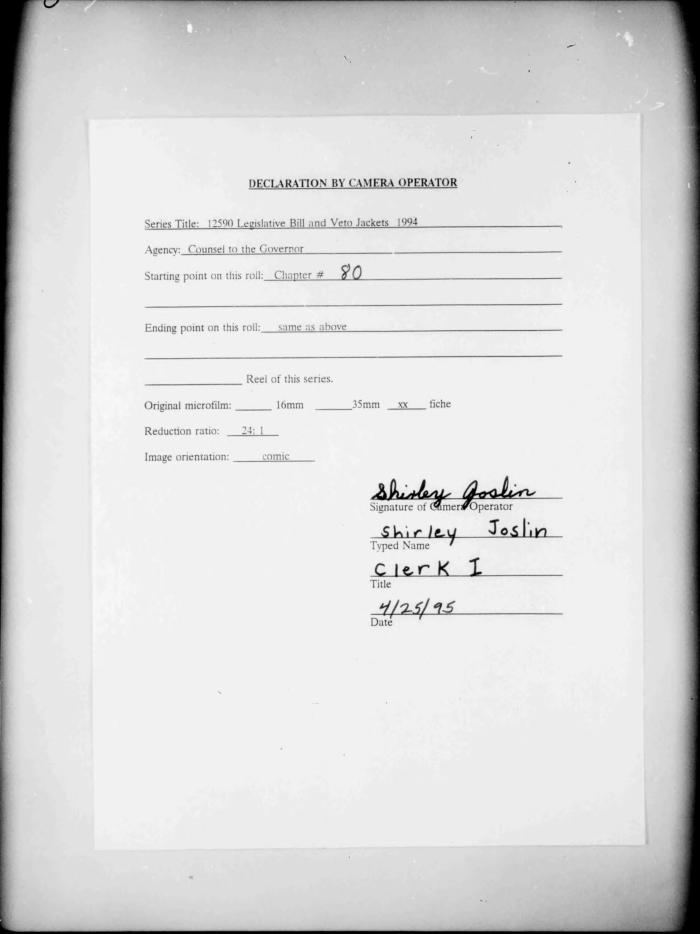 DECLARATION BY CAMERA OPERATOR
Series Title: 12590 Legislative Bill and Veto Jackets 1994
Agency: Counsel to the Governor
Starting point on this roll: Chapter # 80
Ending point on this roll: same as above
Reel of this series.
Original microfilm: 16mm 35mm xx fiche
Reduction ratio: 24: 1
Image orientation: comic
Shirley Joslin
Signature of Camera Operator
Shirley Joslin
Typed Name
Clerk I
Title
4/25/95
Date